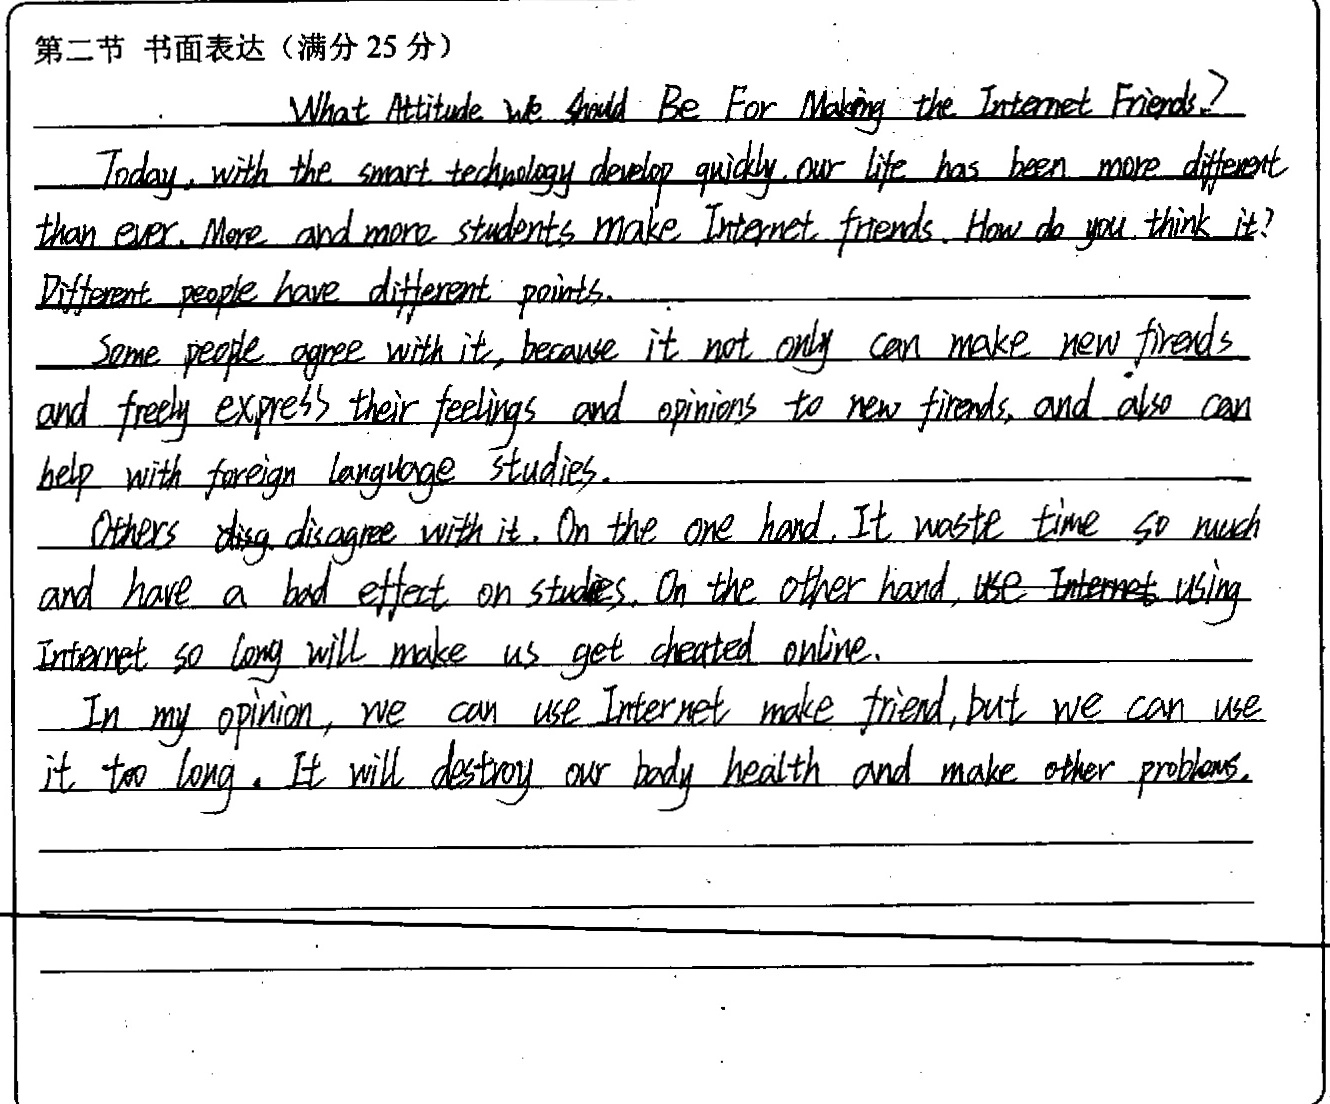 第二节 书面表达（满分 25 分）
What Attitude We Should Be For Making the Internet Friends?
Today, with the smart technology develop quickly, our life has been more different
than ever. More and more students make Internet friends. How do you think it?
Different people have different points.
Some people agree with it, because it not only can make new firends
and freely express their feelings and opinions to new firends, and also can
help with foreign language studies.
Others disg disagree with it. On the one hand, It waste time so much
and have a bad effect on studies. On the other hand, use Internet using
Internet so long will make us get cheated online.
In my opinion, we can use Internet make friend, but we can use
it too long. It will destroy our body health and make other problems.